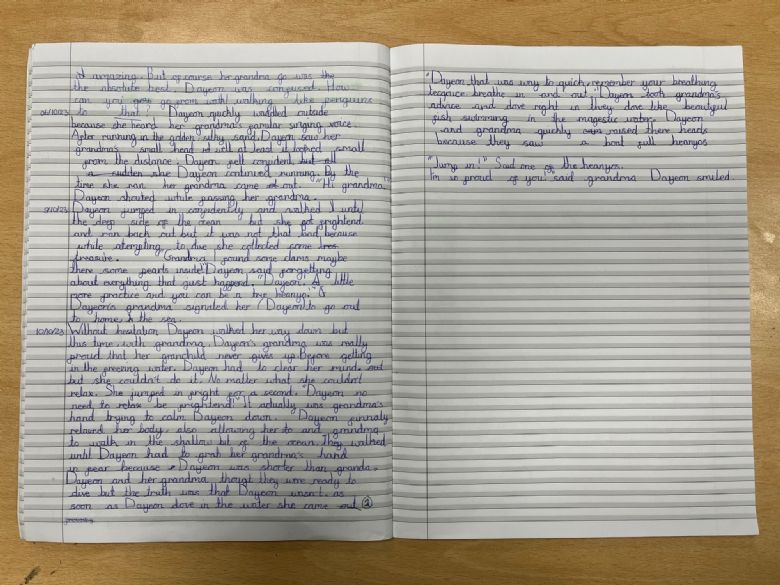 it amazing. But of course her grandma go was the
the absolute best. Dayeon was confused. How
can you go from well walking like penguins
06/10/23 to that. Dayeon quickly waddled outside
because she heard her grandma's familar singing voice.
After running in the golden silky sand, Dayeon saw her
grandma's small head well at least it looked small
from the distance. Dayeon felt confident, but all
a sudden she Dayeon continued running. By the
time she ran her grandma came out. "Hi grandma"
Dayeon shouted while passing her grandma.
9/10/23 Dayeon jumped in confidently and walked until
the deep side of the ocean but she got frightend
and ran back out but it was not that bad because
while atempting to dive she collected some
treasure. "Grandma I found some clams maybe
there some pearls inside" Dayeon said forgetting
about everything that just happend. "Dayeon, A little
more practice and you can be a true heanyo."
Dayeon's grandma signaled her (Dayeon) to go out
to home the sea.
10/10/23 Without hesitation Dayeon walked her way down but
this time, with grandma. Dayeon's grandma was really
proud that her granchild never gives up. Before getting
in the freezing water, Dayeon had to clear her mind,
but she couldn't do it. No matter what she couldn't
relax. She jumped in fright for a second. "Dayeon no
need to be frightend!" It actually was grandma's
hand trying to calm Dayeon down. Dayeon finnaly
relaxed her body, also allowing her to and grandma
to walk in the shallow bit of the ocean. They walked
until Dayeon had to grab her grandma's hand
in fear because Dayeon was shorter than granda.
Dayeon and her grandma though they were ready to
dive but the truth was that Dayeon wasn't. as
soon as Dayeon dove in the water she came out
"Dayeon that was way to quick, remember your breathing
because breathe in and out." Dayeon took grandma's
advise and dove right in they dove like beautiful
fish swimming in the magestic water. Dayeon
and grandma quickly raised there heads
because they saw a boat full heanyos
"Jump in!" Said one of the heanyos.
I'm so proud of you" said grandma Dayeon smiled.